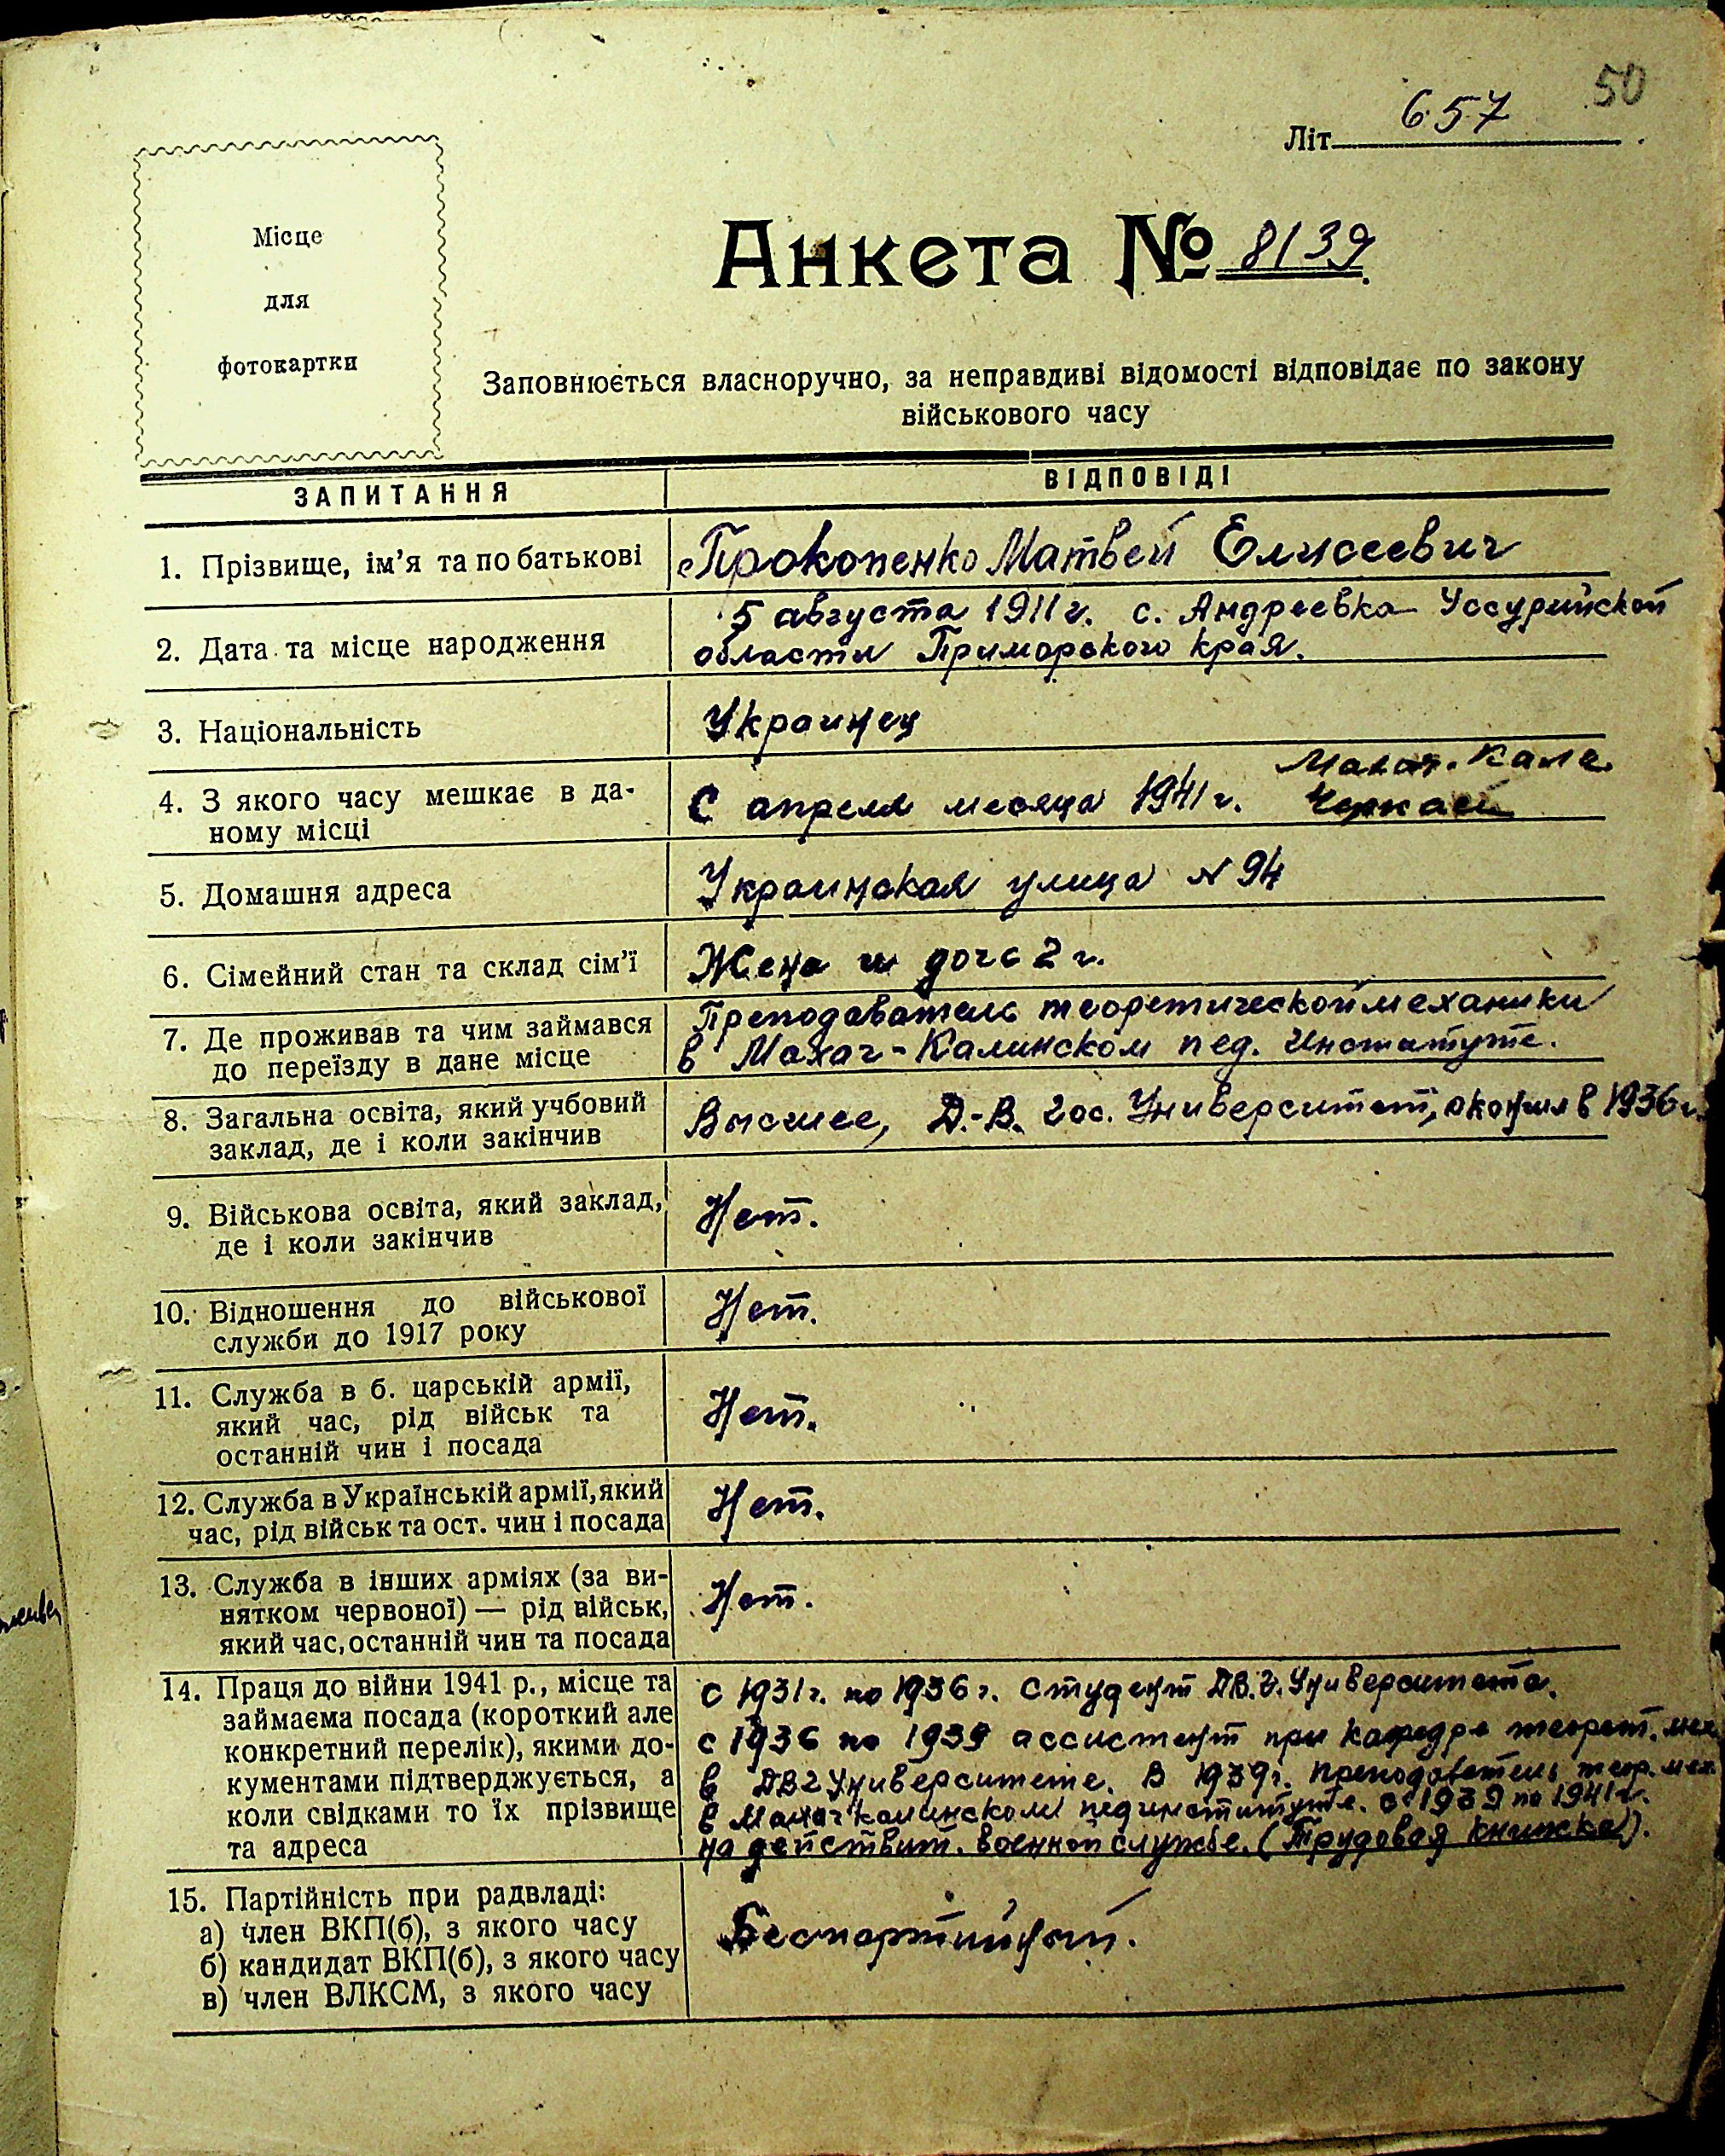 50
Літ. 657
Місце
для
фотокартки
Анкета № 8139
Заповнюється власноручно, за неправдиві відомості відповідає по закону
військового часу
ЗАПИТАННЯ
ВІДПОВІДІ
1. Прізвище, ім'я та по батькові
Прокопенко Матвей Елисеевич
2. Дата та місце народження
5 августа 1911 г. с. Андреевка Уссурийской
области Приморского края.
3. Національність
Украинец
4. З якого часу мешкає в да-
ному місці
Махач-Кала.
С апреля месяца 1941 г. Черкасы
5. Домашня адреса
Украинская улица № 94
6. Сімейний стан та склад сім'ї
Жена и дочь 2 г.
7. Де проживав та чим займався
до переїзду в дане місце
Преподаватель теоретической механики
в Махач-Калинском пед. Институте.
8. Загальна освіта, який учбовий
заклад, де і коли закінчив
Высшее, Д.-В. Гос. Университет, окончил в 1936 г.
9. Військова освіта, який заклад,
де і коли закінчив
Нет.
10. Відношення до військової
служби до 1917 року
Нет.
11. Служба в б. царській армії,
який час, рід військ та
останній чин і посада
Нет.
12. Служба в Українській армії, який
час, рід військ та ост. чин і посада
Нет.
13. Служба в інших арміях (за ви-
нятком червоної) — рід військ,
який час, останній чин та посада
Нет.
14. Праця до війни 1941 р., місце та
займаєма посада (короткий але
конкретний перелік), якими до-
кументами підтверджується, а
коли свідками то їх прізвище
та адреса
с 1931 г. по 1936 г. студент ДВ.Г. Университета.
с 1936 по 1939 ассистент при кафедре теорет. мех.
в ДВГ Университете. В 1939 г. преподаватель теор. мех.
в Махач Калинском пединституте. с 1939 по 1941 г.
на действит. военной службе. (Трудовая книжка).
15. Партійність при радвладі:
а) член ВКП(б), з якого часу
б) кандидат ВКП(б), з якого часу
в) член ВЛКСМ, з якого часу
Беспартийный.